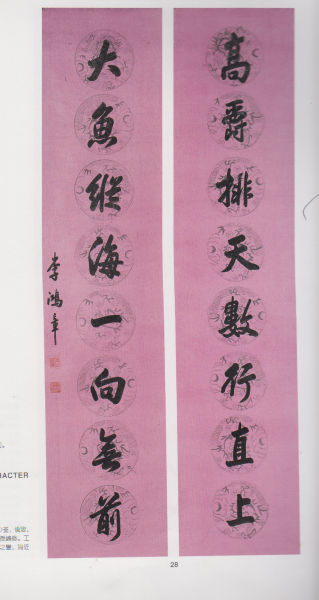 高爵排天數行直上
大魚縱海一向無前
李鴻章
RACTER
28